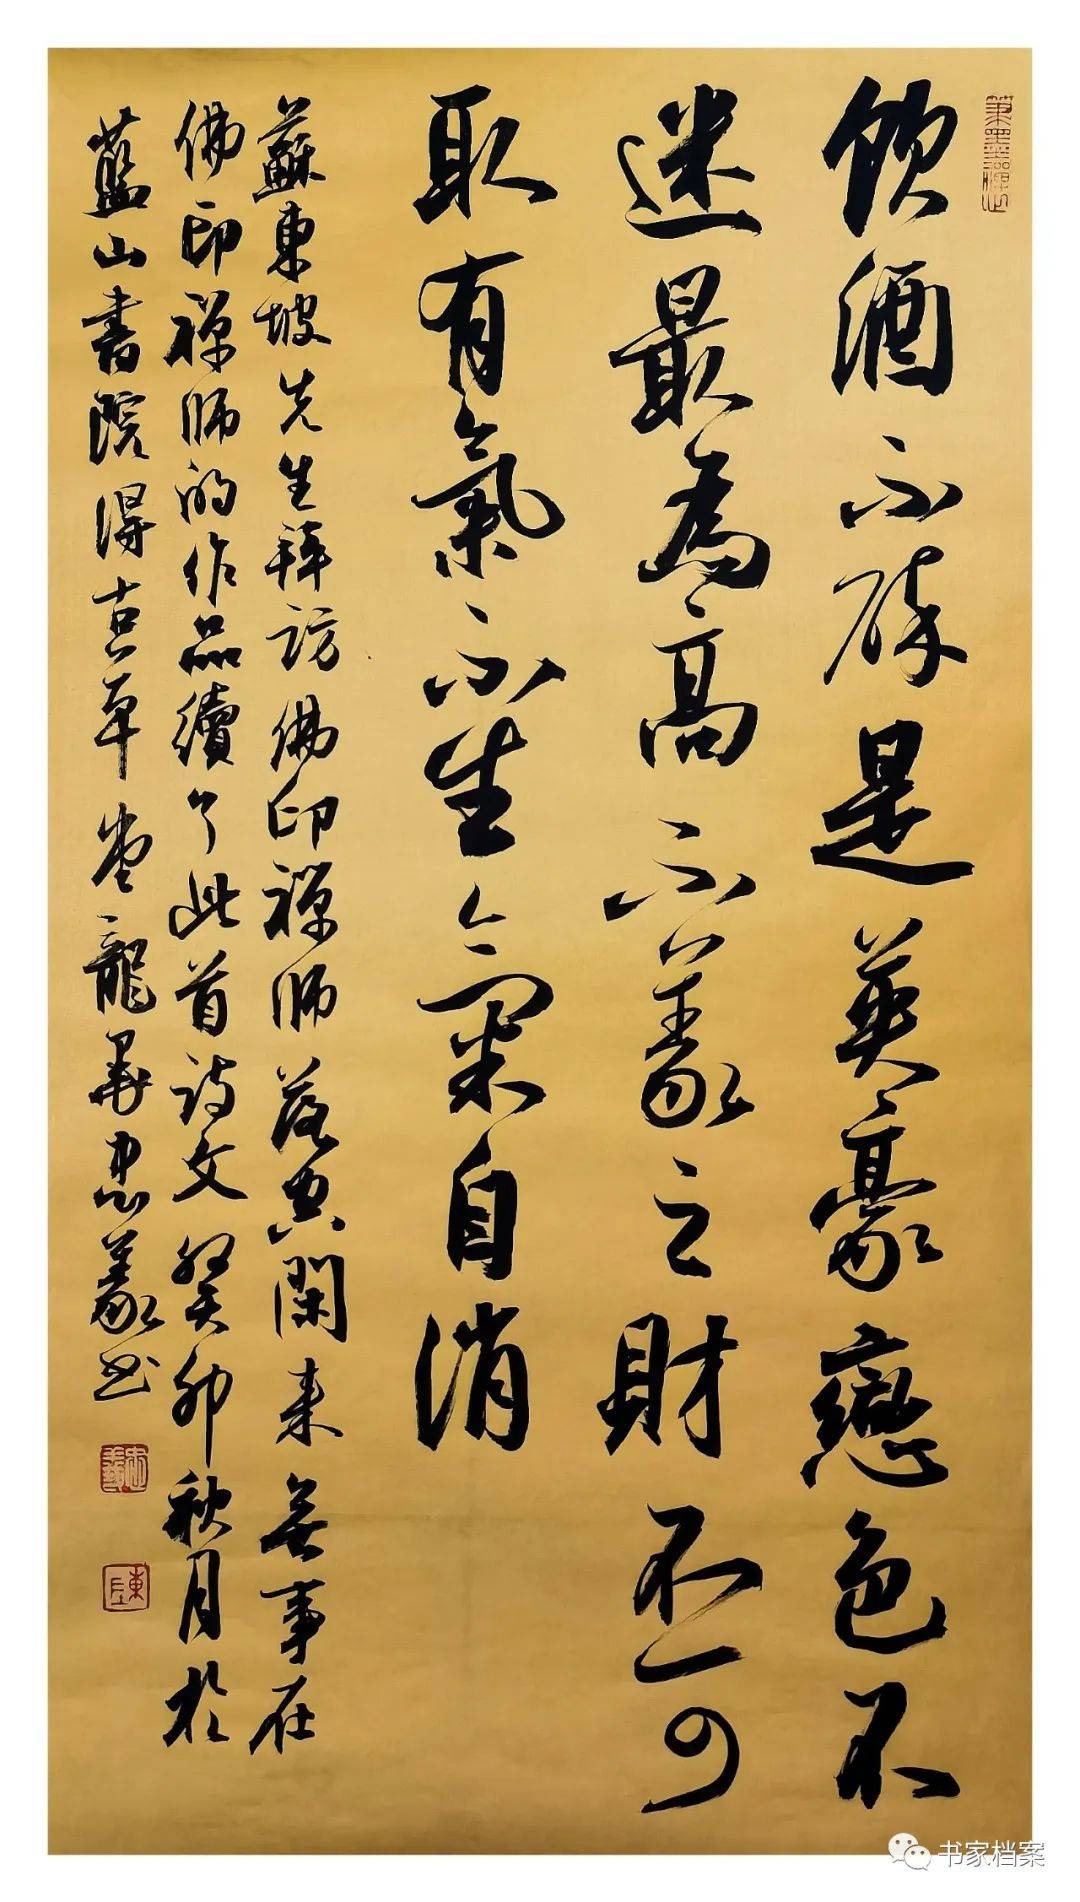 筆墨禪心
飲酒不醉是英豪戀色不
迷最為高不義之財不可
取有氣不生氣自消
蘇東坡先生拜訪佛印禪師落空閑来無事在
佛印禪師的作品續了此首詩文癸卯秋月於
藍山書院得古草堂龍忠義书
忠義
书家档案